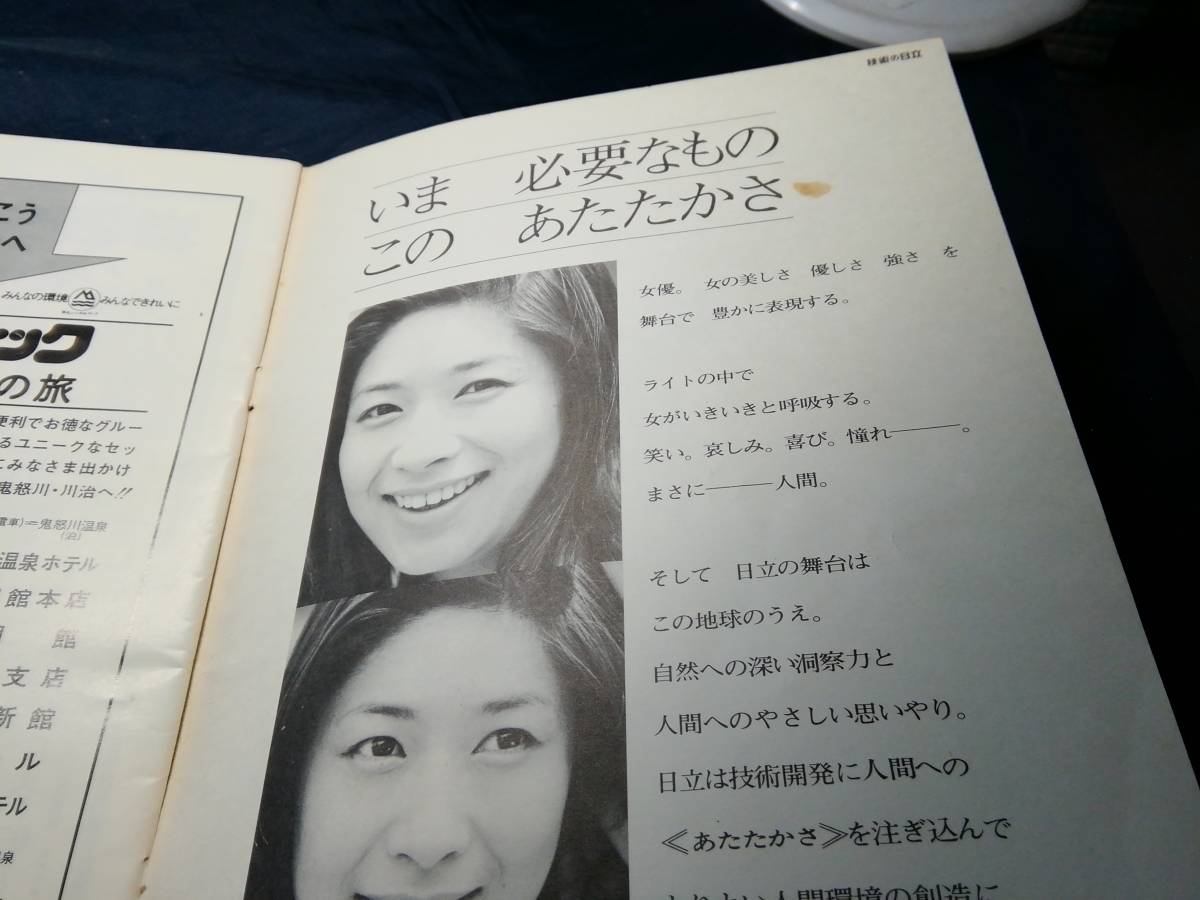 こう
へ
みんなの環境 みんなできれいに
ック
の旅
便利でお徳なグルー
るユニークなセッ
てみなさま出かけ
鬼怒川・川治へ!!
電車)＝鬼怒川温泉
(泊)
温泉ホテル
館本店
館
支店
新館
ル
テル
泉
技術の日立
いま 必要なもの
この あたたかさ
女優。 女の美しさ 優しさ 強さ を
舞台で 豊かに表現する。
ライトの中で
女がいきいきと呼吸する。
笑い。哀しみ。喜び。憧れ———。
まさに———人間。
そして 日立の舞台は
この地球のうえ。
自然への深い洞察力と
人間へのやさしい思いやり。
日立は技術開発に人間への
≪あたたかさ≫を注ぎ込んで
よりよい人間環境の創造に